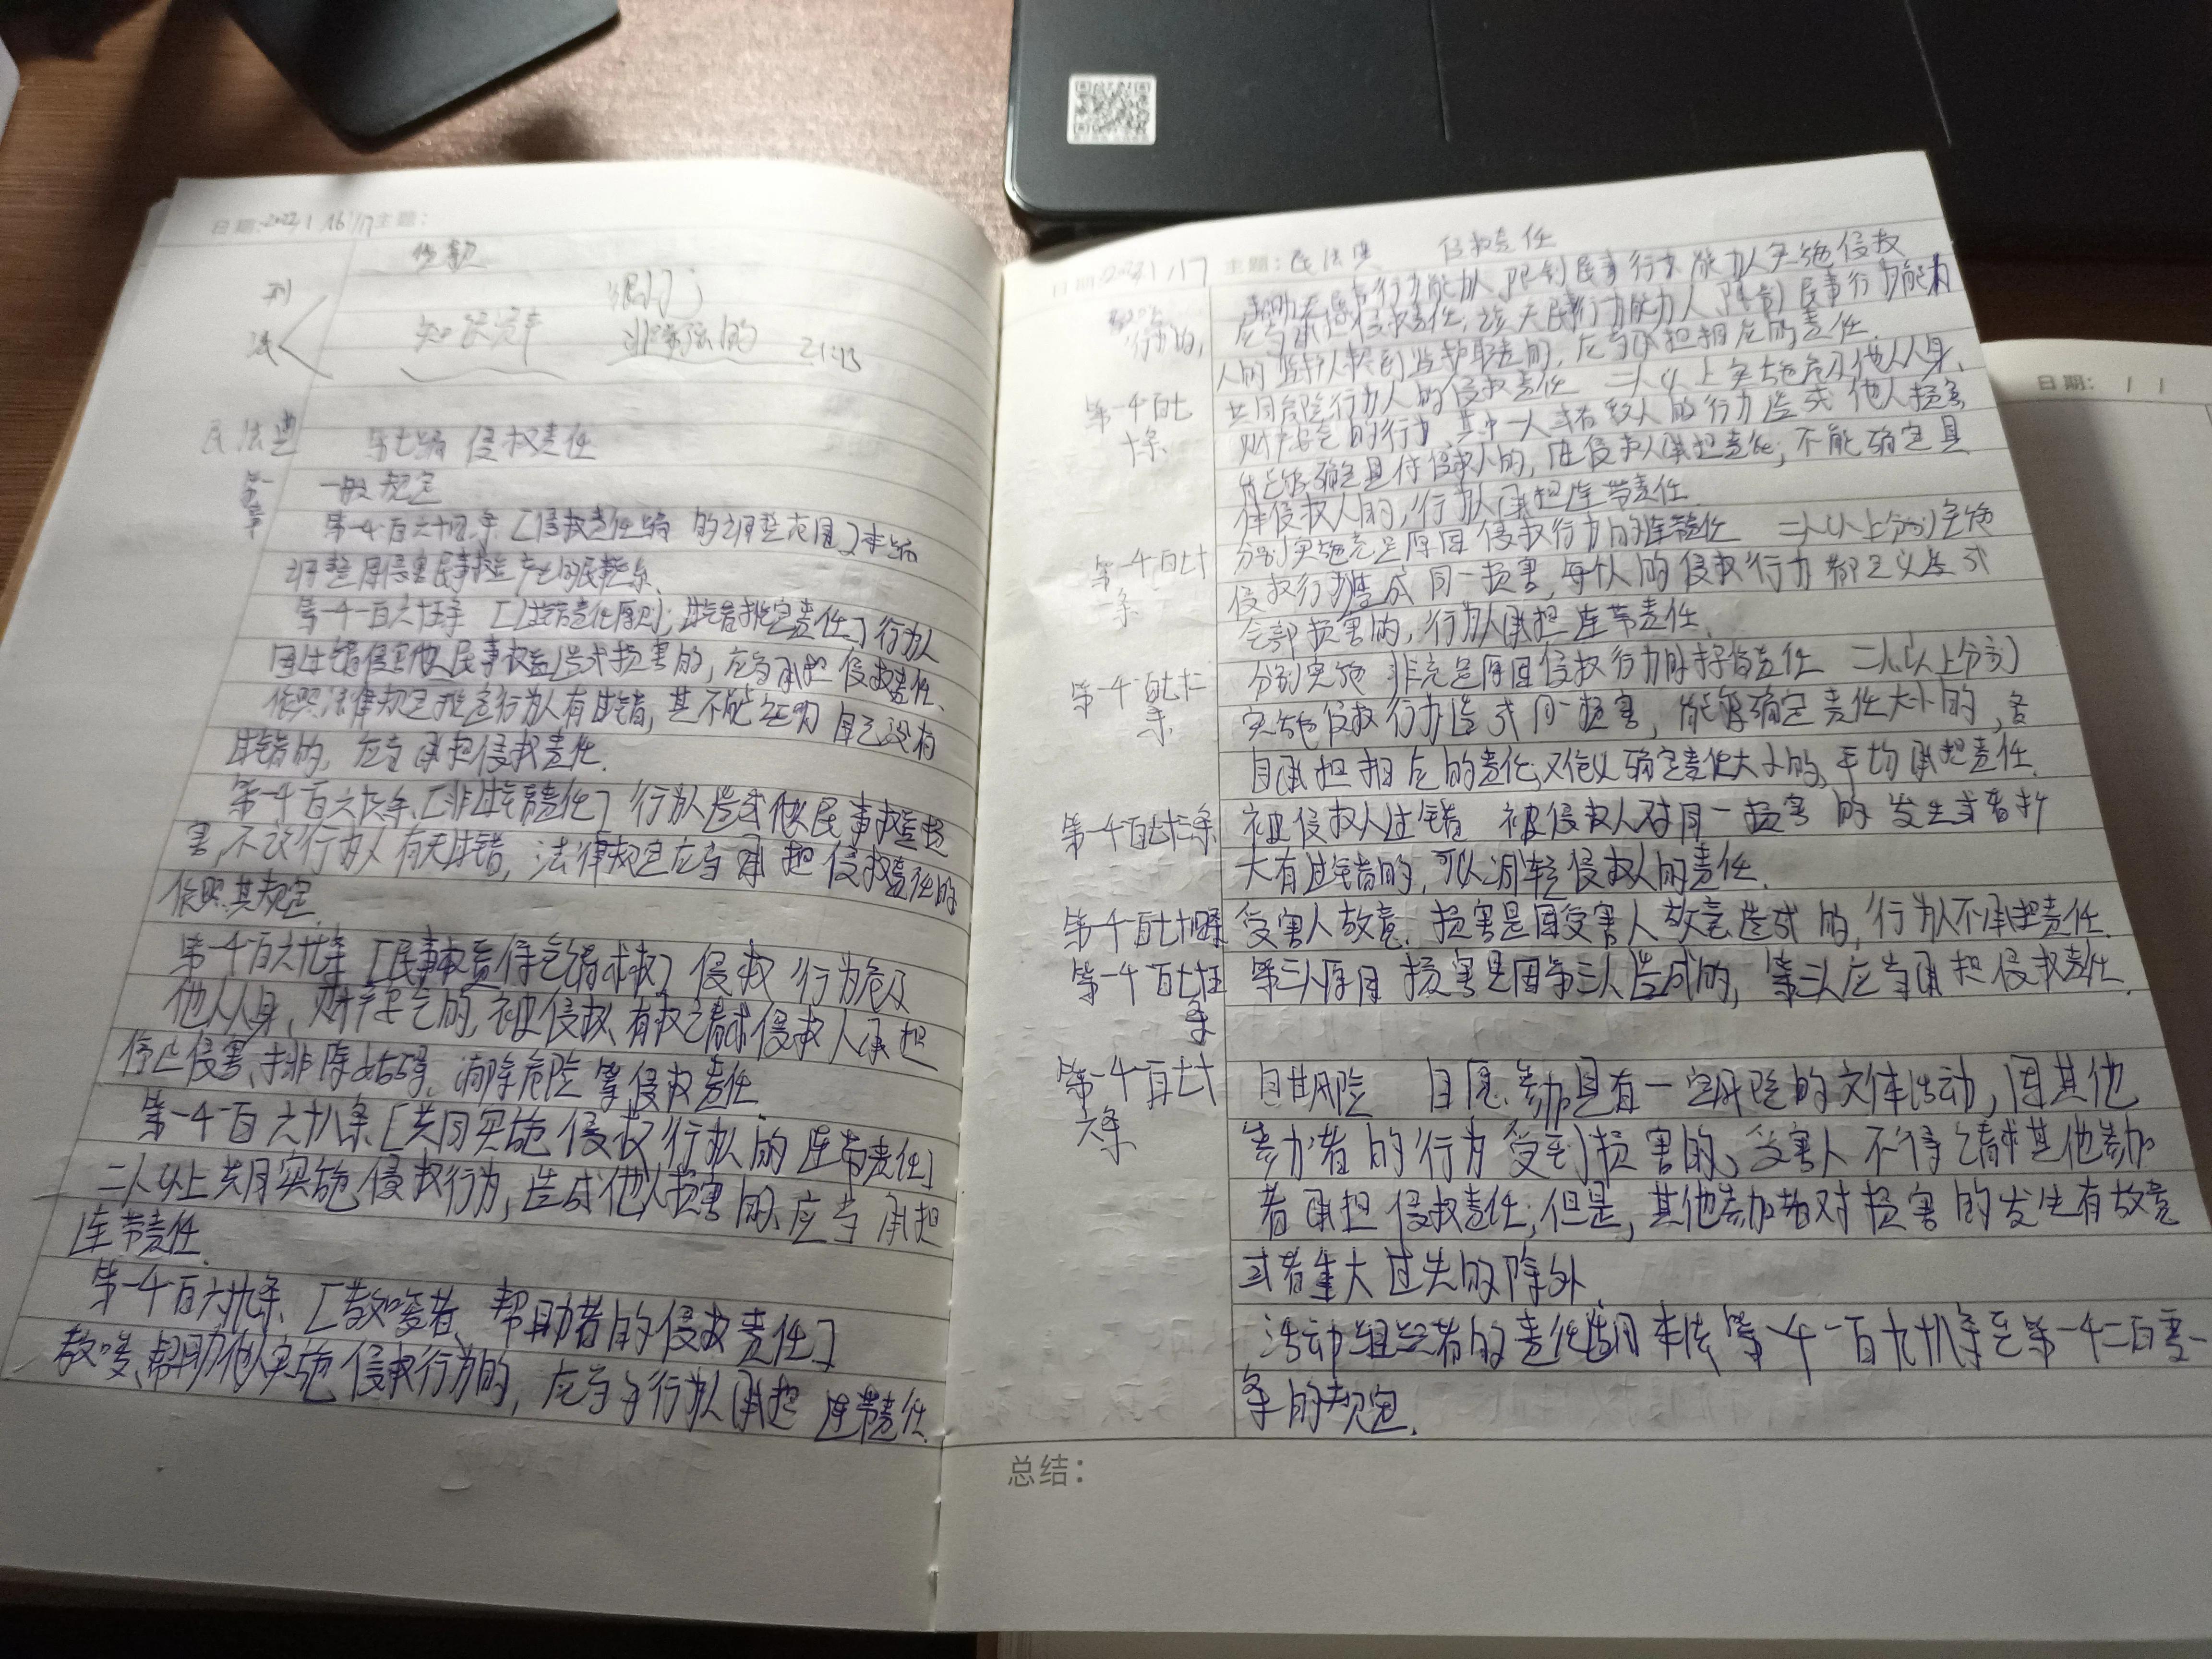 日期: 2022 1 16/17 主题:
刑
法
知识产
21:13
民法典 第七编 侵权责任
第一章 一般规定
第一千一百六十四条 [侵权责任编的调整范围] 本编
调整因侵害民事权益产生的民事关系.
第一千一百六十五条 [过错责任原则; 过错推定责任] 行为人
因过错侵害他人民事权益造成损害的, 应当承担侵权责任.
依照法律规定推定行为人有过错, 其不能证明自己没有
过错的, 应当承担侵权责任.
第一千一百六十六条 [非过错责任] 行为人造成他人民事权益损
害, 不论行为人有无过错, 法律规定应当承担侵权责任的
依照其规定.
第一千百六十七条 [民事权益保全请求权] 侵权行为危及
他人人身, 财产安全的, 被侵权人有权请求侵权人承担
停止侵害、排除妨碍、消除危险等侵权责任.
第一千一百六十八条 [共同实施侵权行为人的连带责任]
二人以上共同实施侵权行为, 造成他人损害的、应当承担
连带责任.
第一千一百六十九条 [教唆者、帮助者的侵权责任]
教唆、帮助他人实施侵权行为的, 应当与行为人承担连带责任.
日期: 2022 1 17 主题: 民法典 侵权责任
帮助无民事行为能力人、限制民事行为能力人实施侵权
行为的, 应当承担侵权责任; 该无民事行为能力人、限制民事行为能力
人的监护人未尽到监护职责的, 应当承担相应的责任.
第一千一百七十条 共同危险行为人的侵权责任 二人以上实施危及他人人身、
财产安全的行为, 其中一人或者数人的行为造成他人损害
能够确定具体侵权人的, 由侵权人承担责任; 不能确定具
体侵权人的, 行为人承担连带责任.
第一千一百七十一条 分别实施充足原因侵权行为的连带责任 二人以上分别实施
侵权行为造成同一损害, 每个人的侵权行为都足以造成
全部损害的, 行为人承担连带责任.
第一千一百七十二条 分别实施非充足原因侵权行为的按份责任 二人以上分别
实施侵权行为造成同一损害, 能够确定责任大小的, 各
自承担相应的责任; 难以确定责任大小的, 平均承担责任.
第一千一百七十三条 被侵权人过错 被侵权人对同一损害的发生或者扩
大有过错的, 可以减轻侵权人的责任.
第一千百七十四条 受害人故意. 损害是因受害人故意造成的, 行为人不承担责任.
第一千一百七十五条 第三人原因 损害是因第三人造成的, 第三人应当承担侵权责任.
第一千一百七十六条 自甘风险 自愿参加具有一定风险的文体活动, 因其他
参加者的行为受到损害的、受害人不得请求其他参加
者承担侵权责任; 但是, 其他参加者对损害的发生有故意
或者重大过失的除外.
活动组织者的责任适用本法第一千一百九十八条至第一千二百零一
条的规定.
总结:
日期: / /